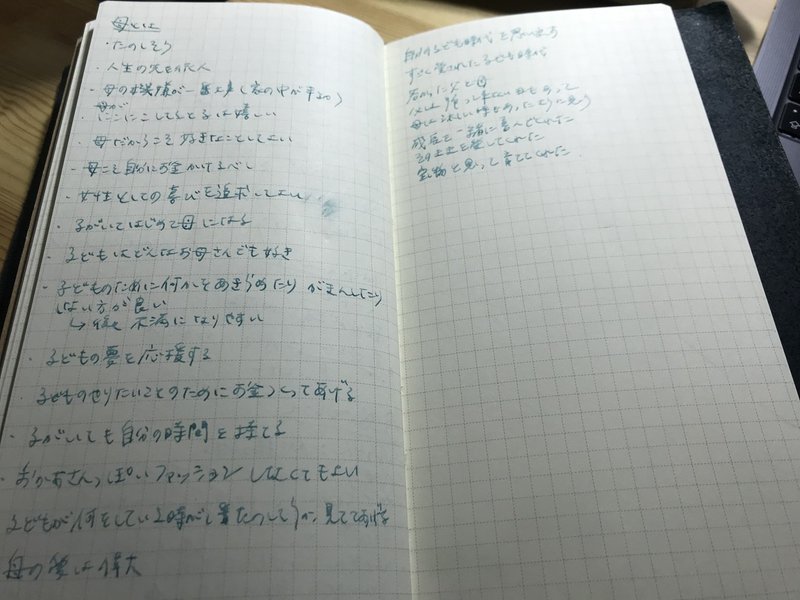 母とは
・たのしそう
・人生の先を行く人
・母の機嫌が一番大事(家の中が平和)
・母がにこにこしてると子は嬉しい
・母だからこそ好きなことしてよい
・母こそ自分にお金かけるべし
・女性としての喜びを追求してよい
・子がいてはじめて母になる
・子どもはどんなお母さんでも好き
・子どものために何かをあきらめたり がまんしたり
しない方が良い
↳後で不満になりやすい
・子どもの夢を応援する
・子どものやりたいことのためにお金つくってあげる
・子がいても自分の時間を持てる
・おかあさんっぽいファッションしなくてもよい
子どもが何をしている時が一番たのしそうか、見ててあげる
母の愛は偉大
自分の子ども時代を思い出す
すごく愛された子ども時代
若かった父と母
成長を一緒に喜んでくれた
宝物と思って育ててくれた